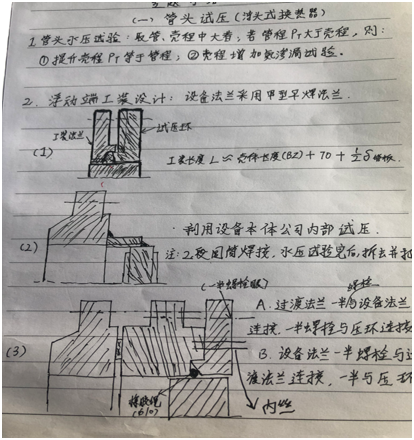 (一) 管头试压 (浮头式换热器)
1. 管头水压试验: 取管、壳程中大者, 若管程PT大于壳程, 则:
① 提升壳程PT等于管程; ② 壳程增加氨渗漏试验。
2. 浮动端工装设计: 设备法兰采用甲型平焊法兰.
工装法兰
试压环
(1)
工装长度 L ≈ 壳体长度(BZ) + 70 + ½δ管板.
(2)
利用设备本体公司内部试压.
注: 2段圆筒焊接, 水压试验完后, 拆去并打
(一半螺栓眼)
螺栓
A. 过渡法兰一半与设备法兰
连接, 一半螺栓与压环连接
(3)
B. 设备法兰一半螺栓与过
渡法兰连接, 一半与压环
橡胶绳
(φ10)
内丝